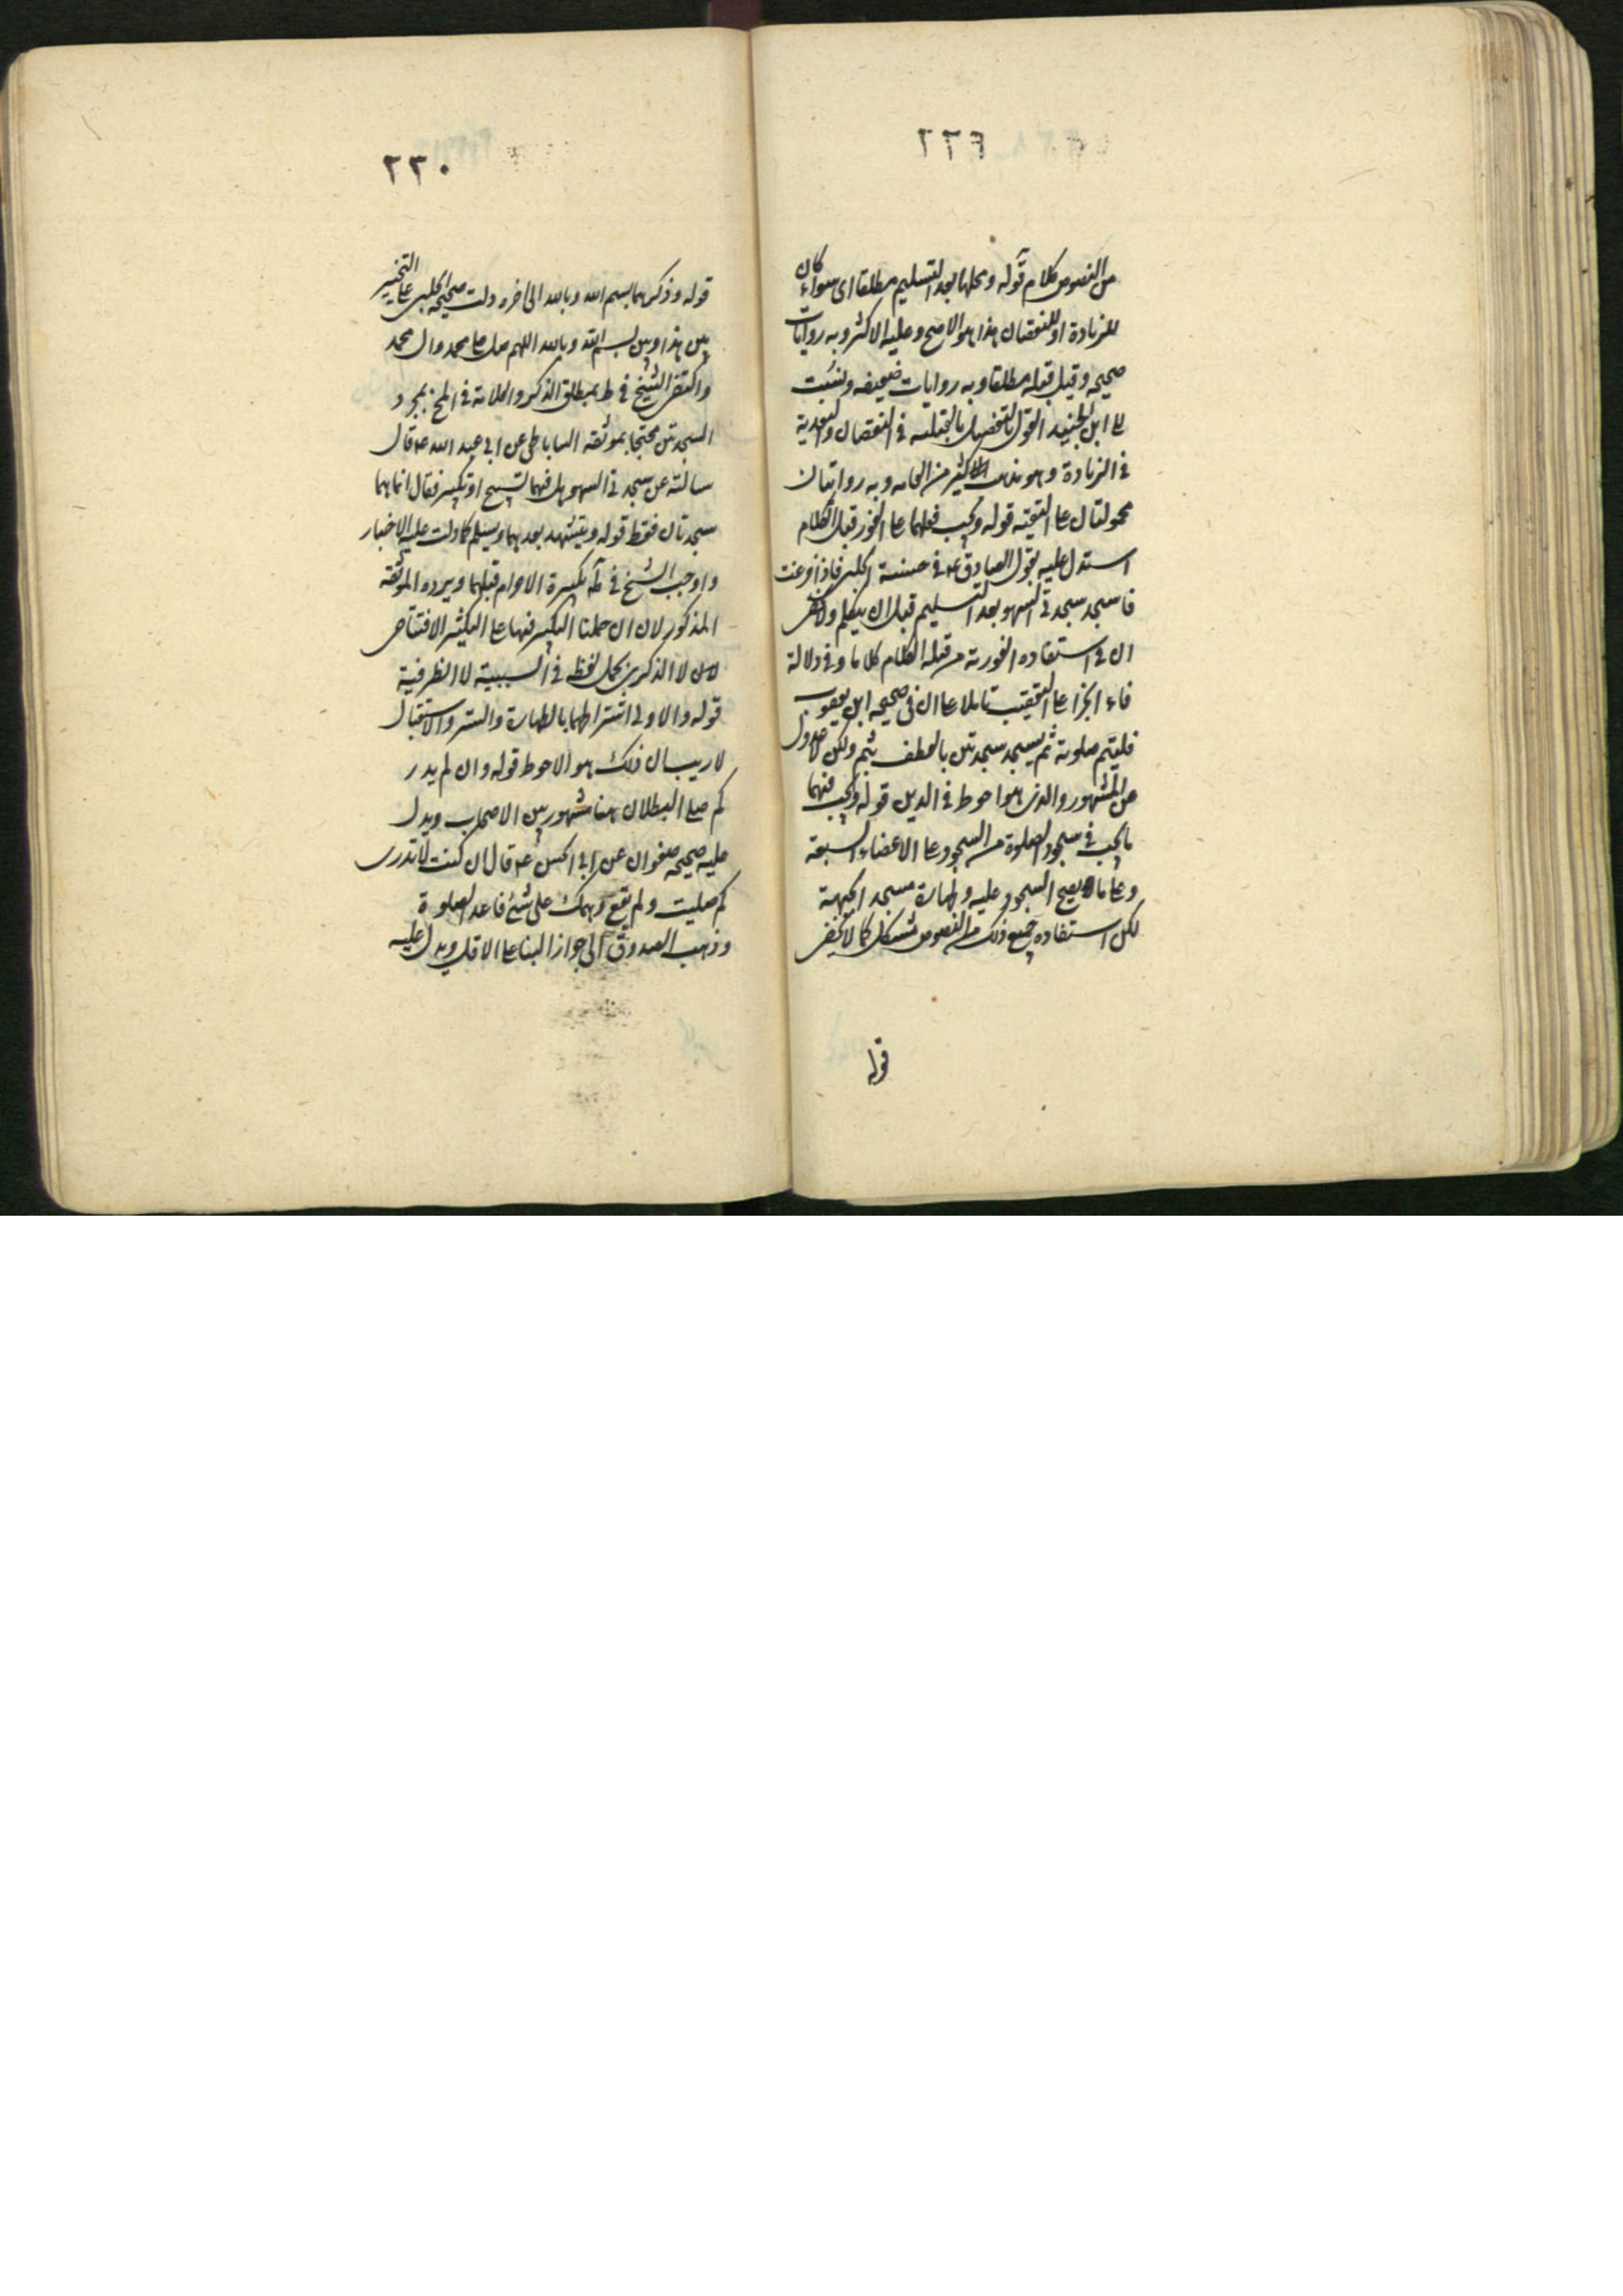 ٢٢٩
من النصوص كلام قوله ومحلها بعد التسليم مطلقا اى سواء كان
للزيادة او للنقصان هذا هو الاصح وعليه الاكثر وبه روايات
صحيحه وقيل قبله مطلقا وبه روايات ضعيفه ونسبت
الى ابن الجنيد القول بالتفصيل بالقبليه في النقصان والبعدية
في الزيادة وهو مذهب كثير من العامه وبه روايتان
محمولتان على التقيه قوله ويجب فعلهما على الفور قبل الكلام
استدل عليه بقول الصادق ع في حسنة الحلبي فاذا فرغت
فاسجد سجدتي السهو بعد التسليم قبل ان يتكلم ولا يخفى
ان في استفاده الفورية من قبله الكلام كلاما وفي دلالة
فاء الجزا على التعقيب تاملا على ان في صحيحه ابن يعفور
فليتم صلوته ثم يسجد سجدتين بالعطف بثم ولكن لا عدول
عن المشهور والذى هو احوط في الدين قوله ويجب فيهما
ما يجب في سجود الصلوة من السجود على الاعضاء السبعة
وعلى ما يصح السجود عليه وطهارة مسجد الجبهة
لكن استفاده جميع ذلك من النصوص مشكل كما لا يخفى
قوله
٢٣٠
قوله وذكرهما بسم الله وبالله الى اخره دلت صحيحه الحلبي على التخيير
بين هذا وبين بسم الله وبالله اللهم صل على محمد وال محمد
واكتفى الشيخ في ط بمطلق الذكر والعلامة في المخ بمجرد
السجدتين محتجا بموثقه الساباطى عن ابي عبد الله ع قال
سالته عن سجدتي السهو هل فيهما تسبيح او تكبير فقال انما هما
سجدتان فقط قوله ويتشهد بعدهما ويسلم كما دلت عليه الاخبار
واوجب الشيخ في ط تكبيرة الاحرام قبلهما ويرده الموثقه
المذكور لان ان حملنا التكبير فيها على التكبير الافتتاحى
لا الذكرى بحمل لفظه في السببية لا الظرفية
قوله والاولى اشتراطهما بالطهارة والستر والاستقبال
لا ريب ان ذلك هو الاحوط قوله وان لم يدر
كم صلى البطلان هنا مشهور بين الاصحاب ويدل
عليه صحيحه صفوان عن ابي الحسن ع قال ان كنت لا تدرى
كم صليت ولم يقع وهمك على شئ فاعد الصلوة
وذهب الصدوق الى جواز البنا على الاقل ويدل عليه